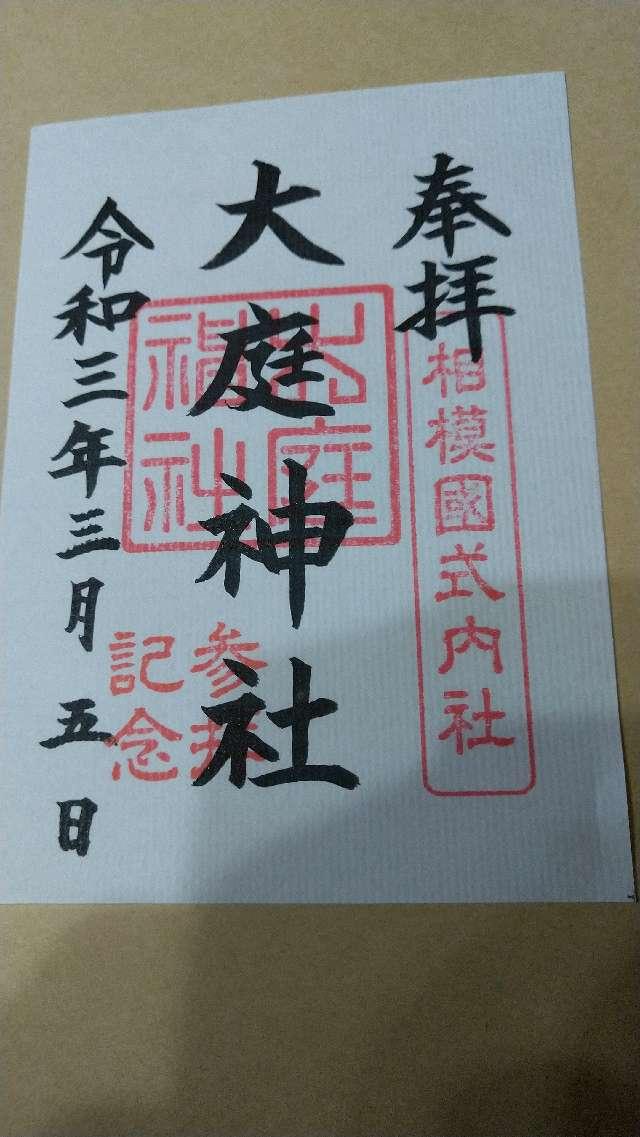 奉拝
相模國式内社
大庭神社
大庭
神社
参拝
記念
令和三年三月五日